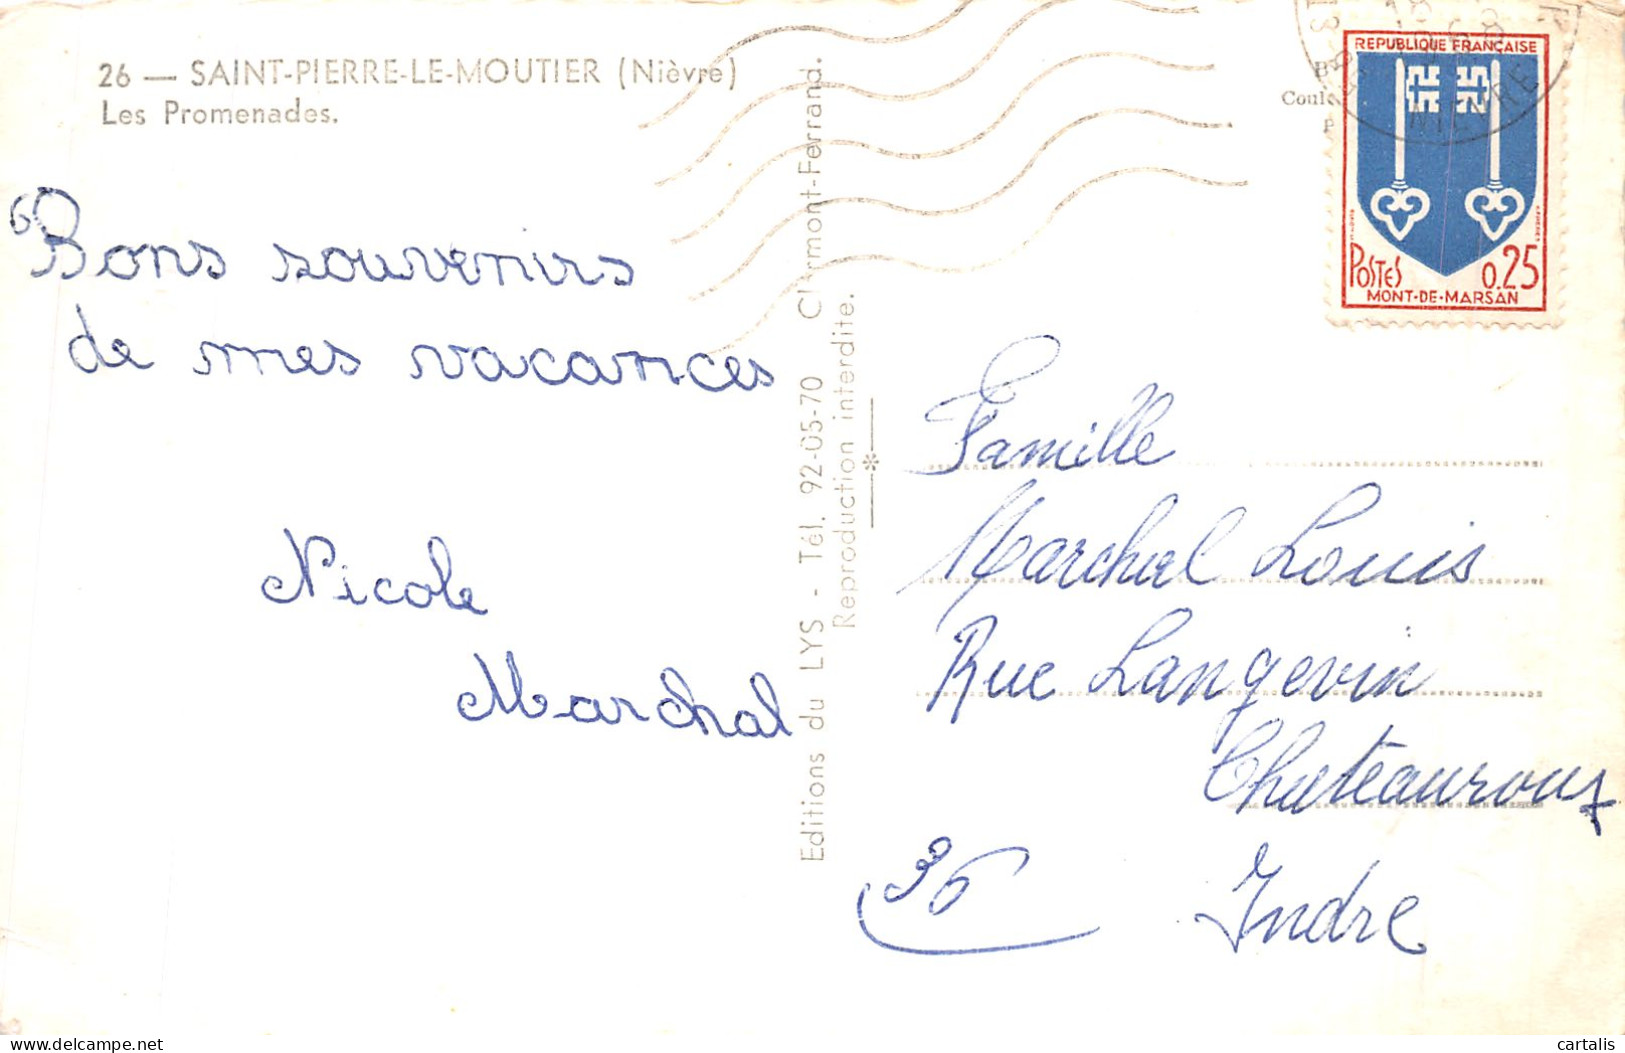 26 — SAINT-PIERRE-LE-MOUTIER (Nièvre)
Les Promenades.
Bons souvenirs
de mes vacances
Nicole
Marchal
Editions du LYS - Tél. 92-05-70 Clermont-Ferrand.
Reproduction interdite.
REPUBLIQUE FRANÇAISE
POSTES 0,25
MONT-DE-MARSAN
NIEVRE
Famille
Marchal Louis
Rue Langevin
Chateauroux
36 Indre
delcampe.net
cartalis